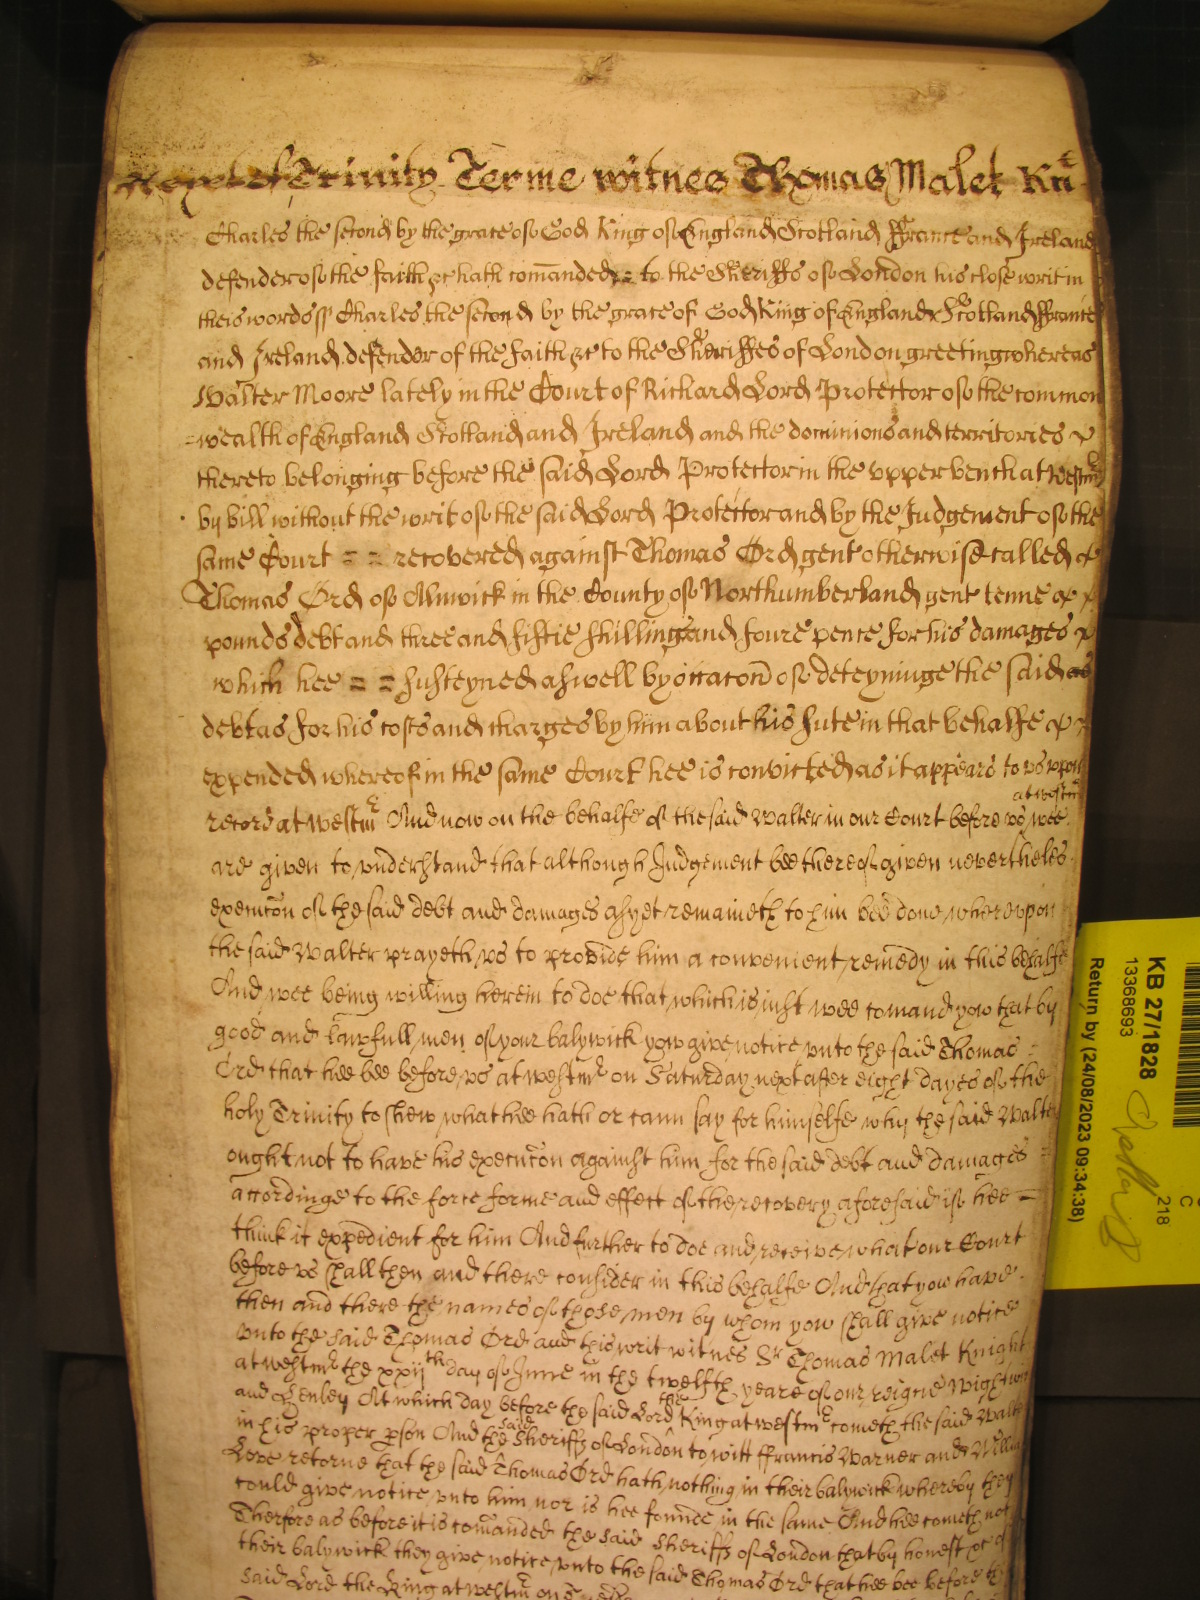 next of Trinity Terme witnes Thomas Malet Knt
Charles the second by the grace of God King of England Scotland ffrance and Ireland
defender of the faith &c hath comanded = to the Sheriffs of London his close writ in
theis words ss Charles the second by the grace of God King of England Scotland ffrance
and Ireland defender of the faith &c to the Sheriffes of London greeting whereas
Walter Moore lately in the Court of Richard Lord Protector of the common
=wealth of England Scotland and Ireland and the dominions and territories
thereto belonging before the said Lord Protector in the upper bench at Westmr
by bill without the writ of the said Lord Protector and by the Judgement of the
same Court = = recovered against Thomas Ord gent otherwise called
Thomas Ord of Alnwick in the County of Northumberland gent tenne
pounds debt and three and fiftie shillings and foure pence for his damages
which hee = = susteyned aswell by occacon of deteyninge the said
debt as for his costs and charges by him about his sute in that behalfe
expended whereof in the same Court hee is convicted as it appears to us upon
record at Westmr And now on the behalfe of the said Walter in our Court before us at Westmr wee
are given to understand that although Judgement bee thereof given nevertheles
execucon of the said debt and damages as yet remaineth to him bee done whereupon
the said Walter prayeth us to provide him a convenient remedy in this behalfe
And wee being willing herein to doe that which is just wee comand yow that by
good and lawfull men of your balywick yow give notice unto the said Thomas
Ord that hee bee before us at Westmr on Saturday next after eight dayes of the
holy Trinity to shew what hee hath or cann say for himselfe why the said Walter
ought not to have his execucon against him for the said debt and damages =
accordinge to the force forme and effect of the recovery aforesaid if hee
think it expedient for him And further to doe and receive what our Court
before us shall then and there consider in this behalfe And that yow have
then and there the names of those men by whom yow shall give notice
unto the said Thomas Ord and this writ witnes Sr Thomas Malet Knight
at Westmr the xxijth day of June in the twelfth yeare of our reigne Wightwick
and Henley At which day before the said Lord the King at Westmr cometh the said Walter
in his proper pson And the said Sheriffs of London to witt ffrancis Warner and William
Love retorne that the said Thomas Ord hath nothing in their balywick whereby they
could give notice unto him nor is hee founde in the same And hee cometh not
Therfore as before it is comanded the said Sheriffs of London that by honest &c of
their balywick they give notice unto the said Thomas Ord that hee bee before the
said Lord the King at Westmr on
KB 27/1828
13368693
Return by (24/08/2023 09:34:38)
218
C